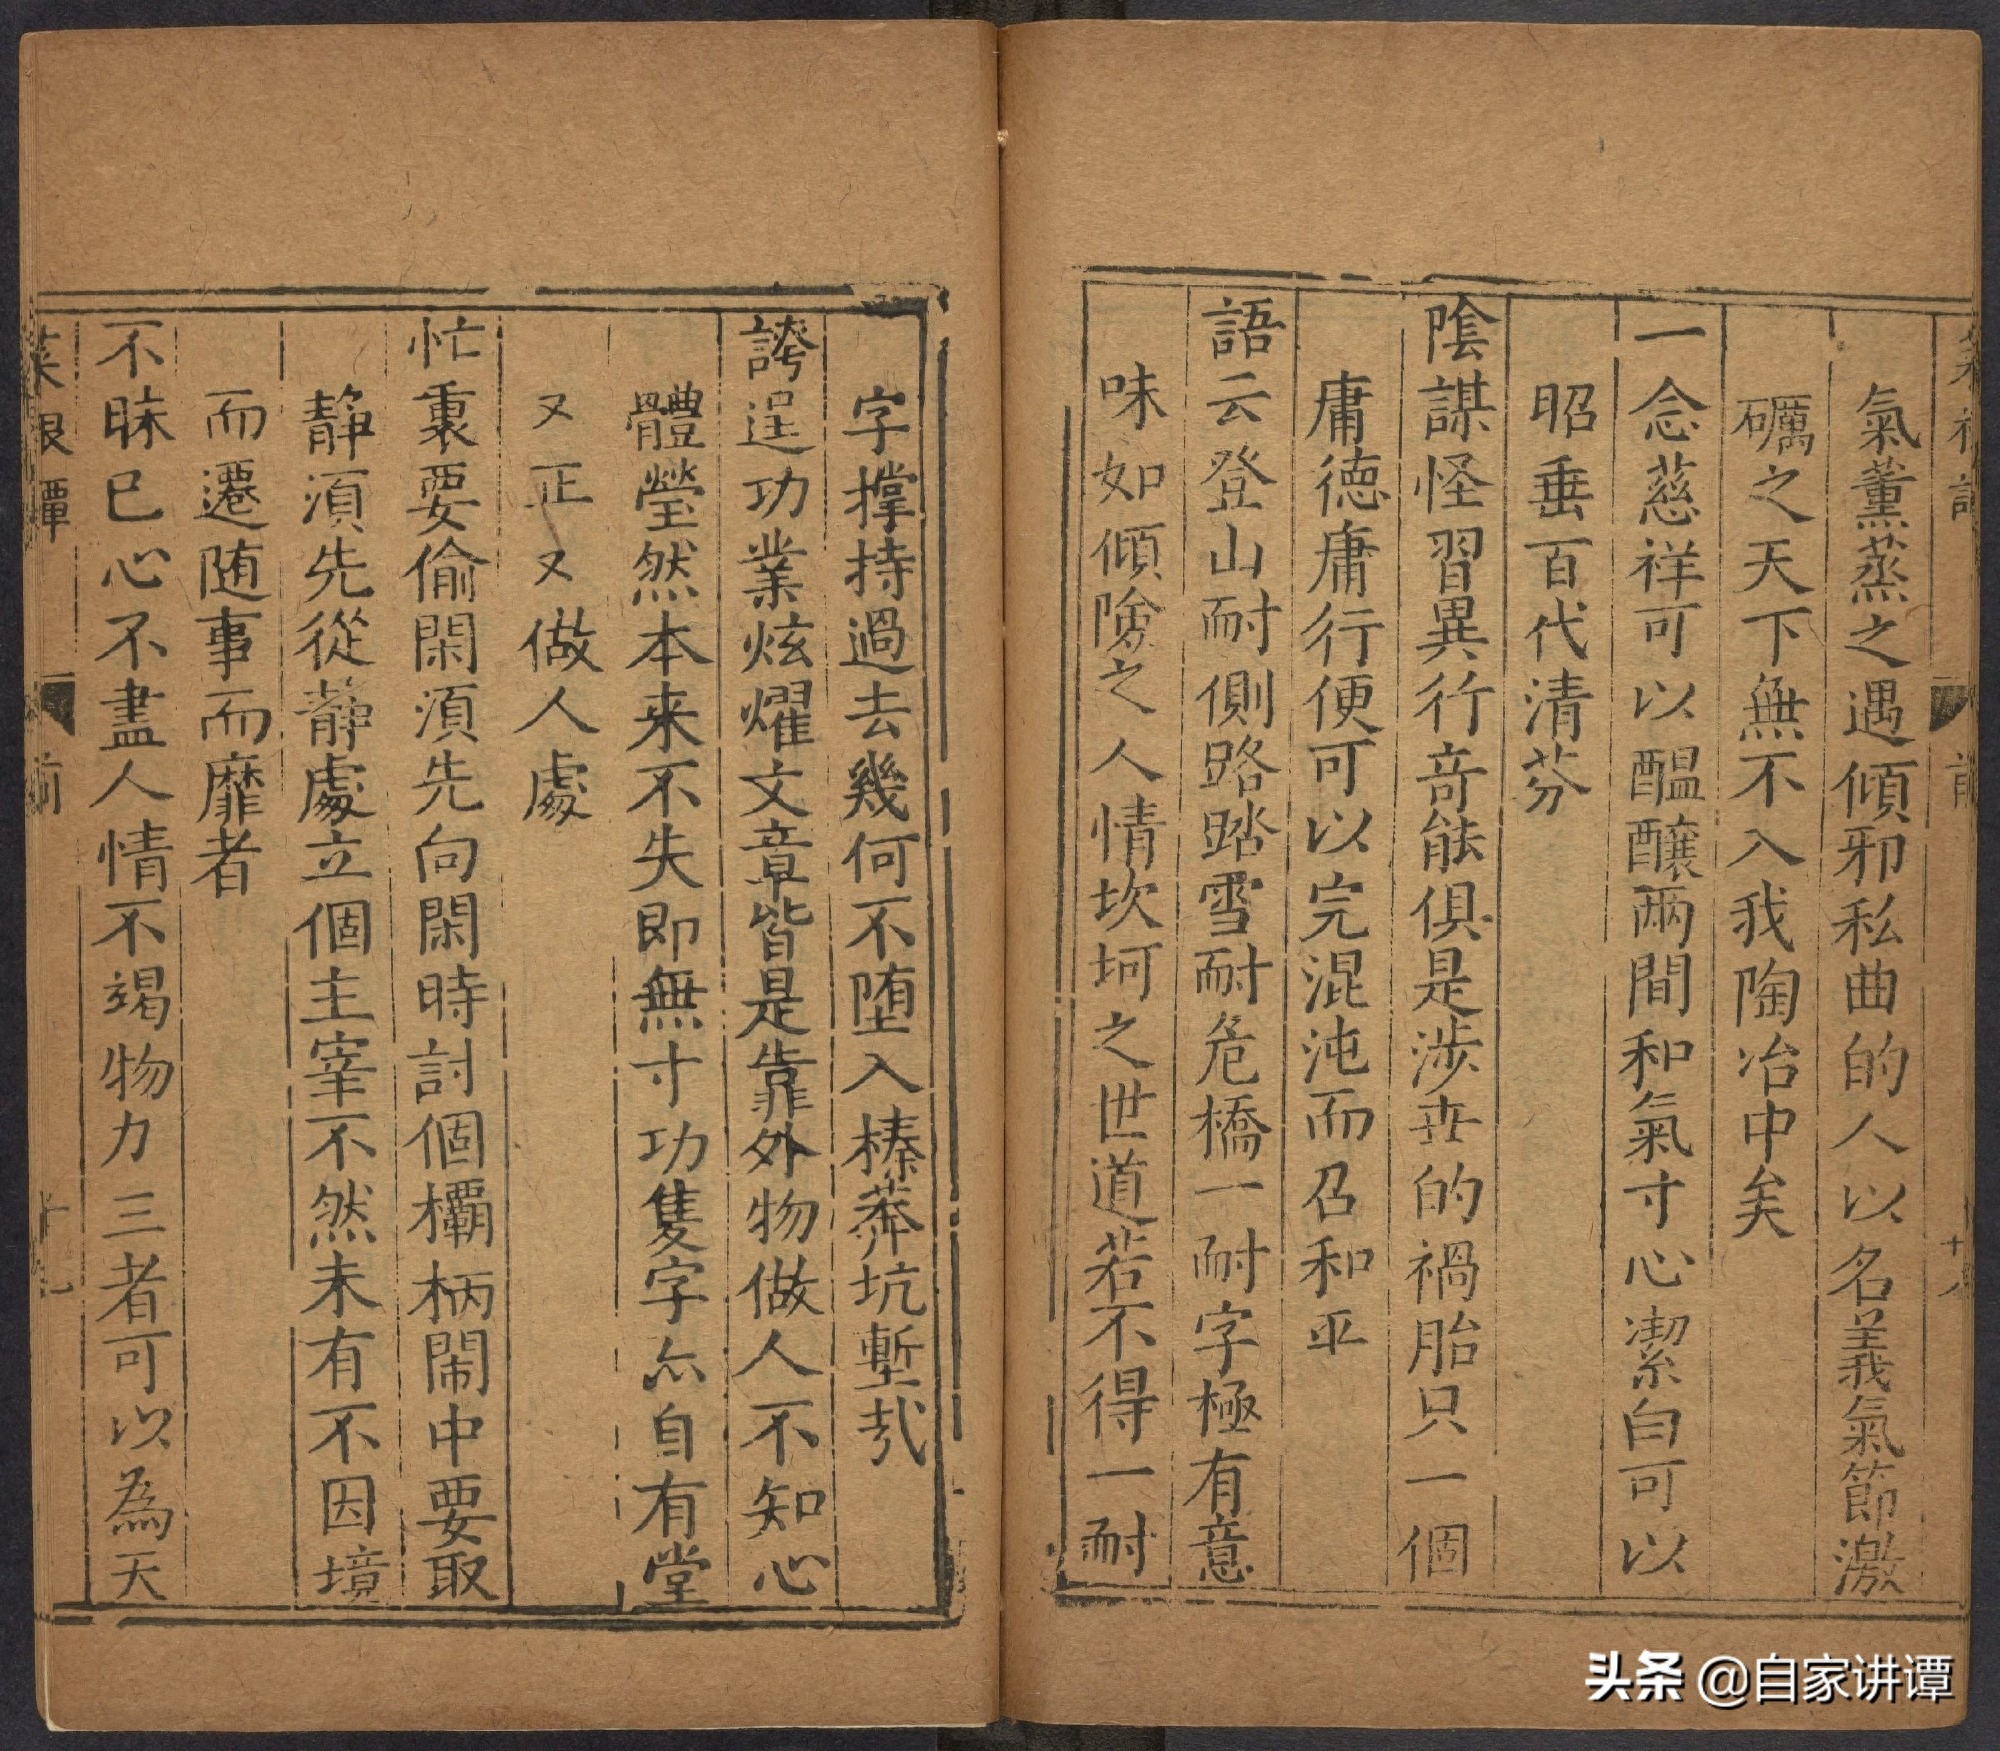 氣薰蒸之遇傾邪私曲的人以名義氣節激
礪之天下無不入我陶冶中矣
一念慈祥可以醞釀兩間和氣寸心潔白可以
昭垂百代清芬
陰謀怪習異行奇能俱是涉世的禍胎只一個
庸德庸行便可以完混沌而召和平
語云登山耐側路踏雪耐危橋一耐字極有意
味如傾險之人情坎坷之世道若不得一耐
字撑持過去幾何不堕入榛莽坑塹哉
誇逞功業炫燿文章皆是靠外物做人不知心
體瑩然本来不失即無寸功隻字亦自有堂
又正又做人處
忙裏要偷閑須先向閑時討個欛柄鬧中要取
静須先從静處立個主宰不然未有不因境
而遷随事而靡者
不昧已心不盡人情不竭物力三者可以為天
菜根譚
前
头条 @自家讲谭